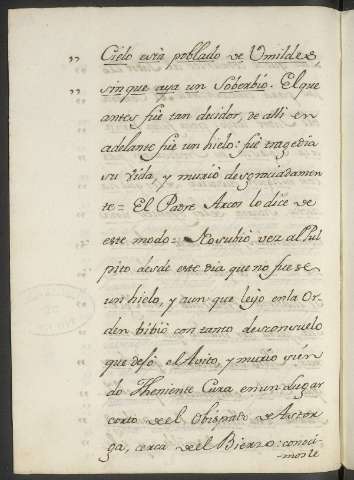 „ Cielo está poblado de Vmildes
„ sin que aya un Soberbio. El que
antes fue tan decidor, de alli en
adelante fue un hielo: fue tragedia
su vida, y murio desgraciadamen
te= El Padre Arcos lo dice de
este modo= No subio vez al Pul
pito desde este dia que no fuese
un hielo, y aun que leyo en la Or
den bibio con tanto desconsuelo
que dejó el Avito, y murio sien
do Theniente Cura en un Lugar
corto de el Obispado de Astor
ga, cerca de el Bierzo: conoci-
mosle